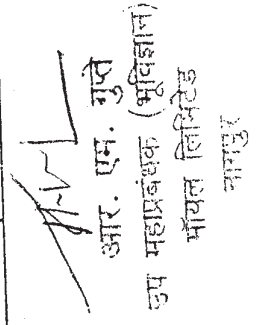 आर. एम. गुप्ते
उप महाप्रबंधक (भूविज्ञान)
मॉयल लिमिटेड
नागपुर